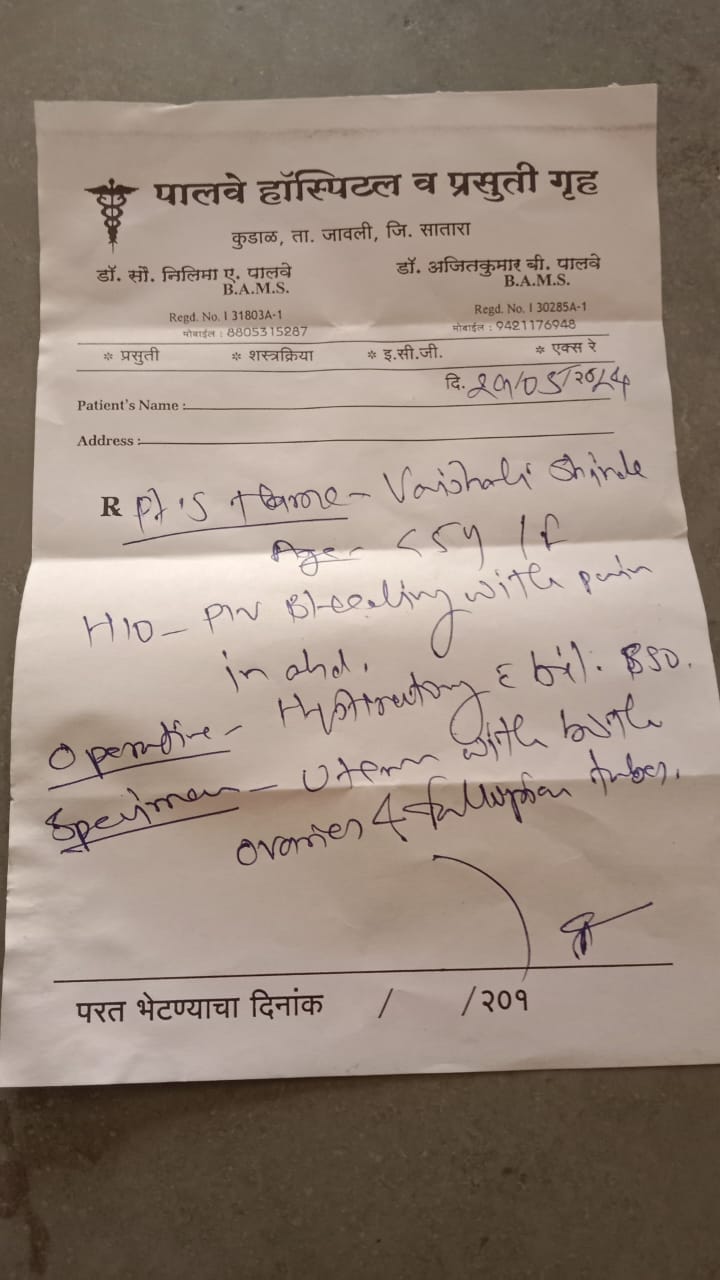 पालवे हॉस्पिटल व प्रसुती गृह
कुडाळ, ता. जावली, जि. सातारा
डॉ. सौ. निलिमा ए. पालवे
B.A.M.S.
Regd. No. I 31803A-1
मोबाईल : 8805315287
डॉ. अजितकुमार बी. पालवे
B.A.M.S.
Regd. No. I 30285A-1
मोबाईल : 9421176948
* प्रसुती * शस्त्रक्रिया * इ.सी.जी. * एक्स रे
दि.
Patient's Name :
Address :
R Pt's Name - Vaishali Shinde
Age -
H/O - P/V Bleeding with pain
in abd.
Operative - bil. BSO.
Specimen - Uterus with both
ovaries & fallopian tubes.
परत भेटण्याचा दिनांक / /२०१